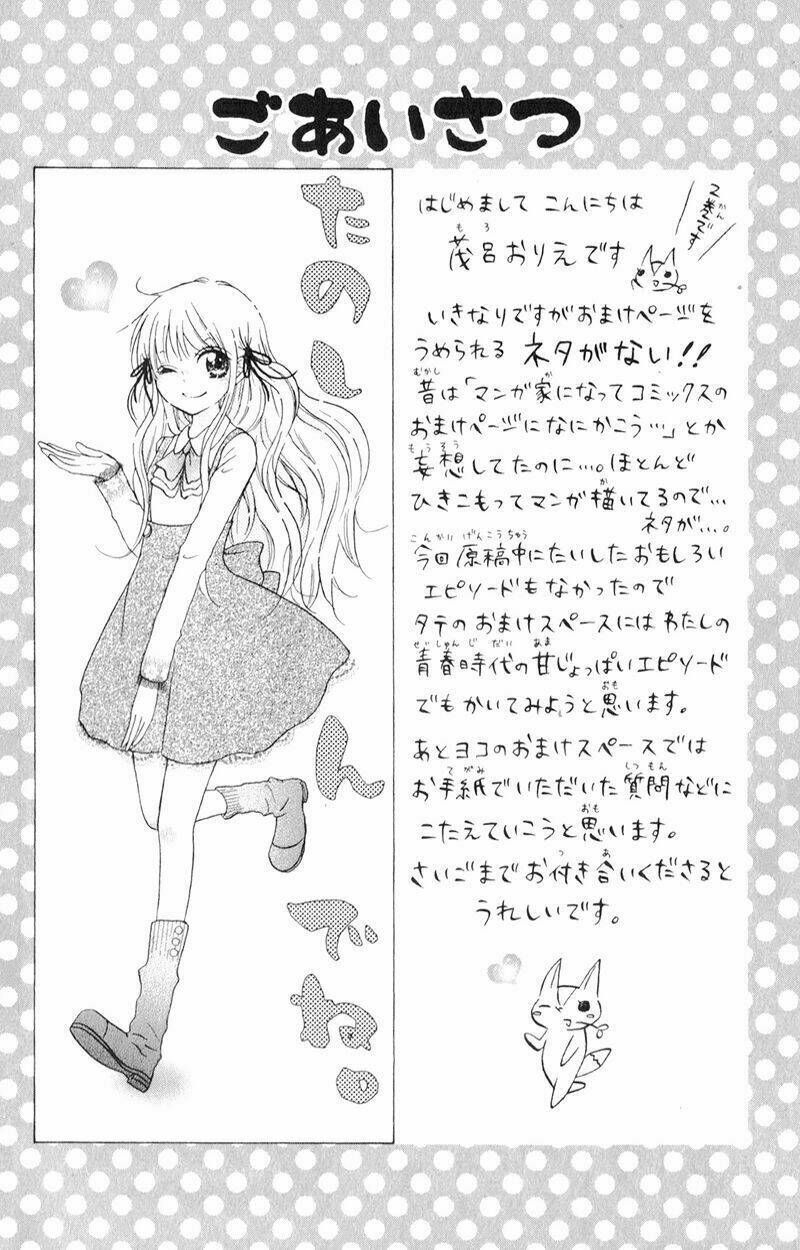 ごあいさつ
はじめまして こんにちは
茂呂おりえです
もろ
2巻です
かん
いきなりですがおまけページを
うめられる ネタがない!!
昔は「マンガ家になってコミックスの
むかし
か
おまけページになにかこう…」とか
妄想してたのに…。ほとんど
もうそう
ひきこもってマンガ描いてるので…
か
ネタが…。
今回原稿中にたいしたおもしろい
こんかい げんこうちゅう
エピソードもなかったので
タテのおまけスペースにはわたしの
青春時代の甘じょっぱいエピソード
せいしゅんじだい あま
でもかいてみようと思います。
おも
あとヨコのおまけスペースでは
お手紙でいただいた質問などに
てがみ
しつもん
こたえていこうと思います。
おも
さいごまでお付き合いくださると
つ あ
うれしいです。
たのしんでね。